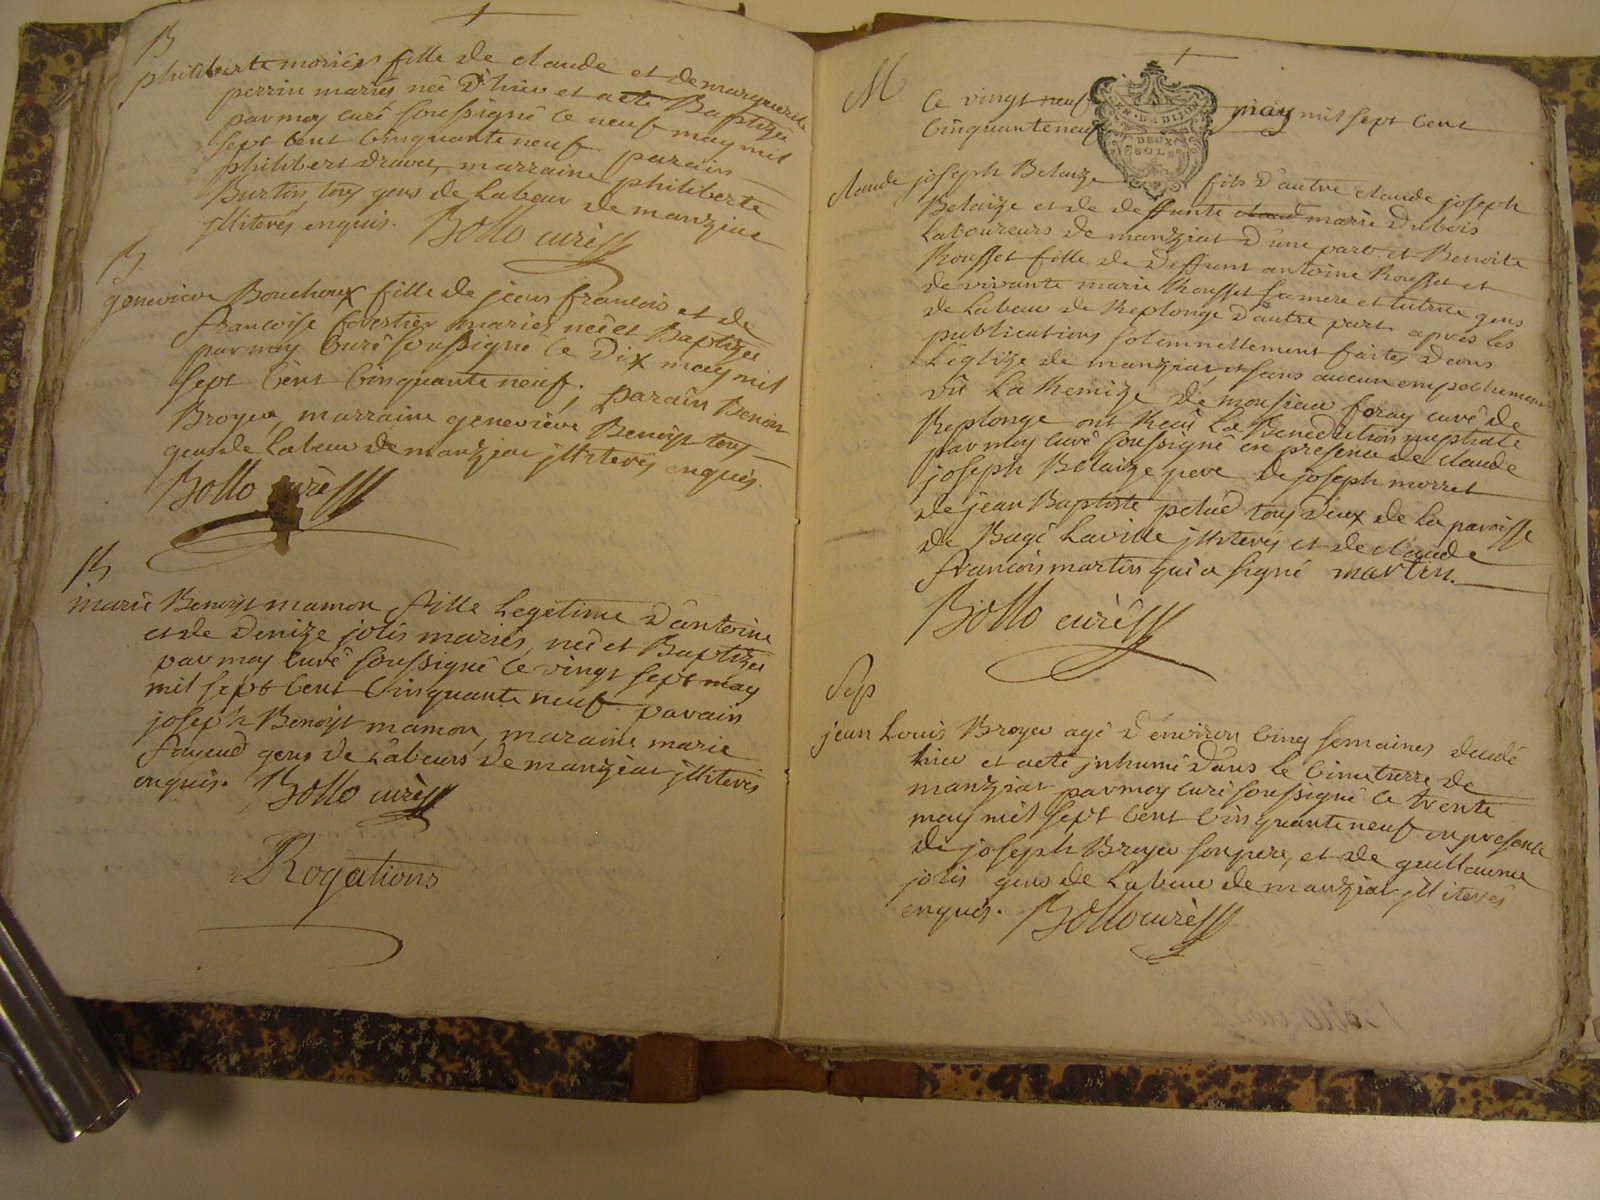 B
philiberte moriers fille de claude et de marguerite
perrin mariés neé d'hier et a eté Baptizée
par moy curé soussigné le neuf may mil
sept cent cinquante neuf. parain
philibert dravet, marraine philiberte
Burtin, tous gens de Labeur de manziat
jlliterés enquis. Bollo curé
B
genevieve Bouchoux fille de jean francois et de
francoise forestier mariés neé et Baptizée
par moy Curé soussigné le Dix may mil
sept Cent Cinquante neuf. parain Benoit
Broyer, marraine genevieve Benoist tous
gens de Labeur de manziat jlliterés enquis.
Bollo curé
B
marie Benoist mamon fille Legetime d'antoine
et de Denize jolis mariés, neé et Baptizée
par moy Curé soussigné le vingt sept may
mil sept Cent Cinquante neuf. parain
joseph Benoist mamon, maraine marie
gens de Labeurs de manziat jlliterés
enquis. Bollo curé
Rogations
M
Le vingt neuf may mil sept Cent
Cinquante neuf
GEN. DE DIJON
DEUX
SOLS
claude joseph Belaize fils d'autre claude joseph
Belaize et de deffunte marie Dubois
Laboureurs de manziat d'une part. et Benoite
Rousset fille de Deffunt antoine Rousset et
de vivante marie Rousset sa mere et tutrice gens
de Labeur de Replonge d'autre part. apres les
publications solemnellement faites dans
L'eglize de manziat et sans aucun empechement
vû La Remize de monsieur foray curé de
Replonge ont Reçû La Benediction nuptiale
par moy curé soussigné en presence de claude
joseph Belaize pere de joseph morret
de jean Baptiste pelud tous deux de La paroisse
de Bagé Laville jlliterés et de claude
francois martin qui a signé martin.
Bollo curé
Sep
jean Louis Broyer agé d'environ Cinq semaines decedé
hier et a eté jnhumé dans le Cimetierre de
manziat par moy Curé soussigné le trente
may mil sept Cent Cinquante neuf en presence
de joseph Broyer son pere, et de guillaume
jolis gens de Labeur de manziat jlliterés
enquis. Bollo curé